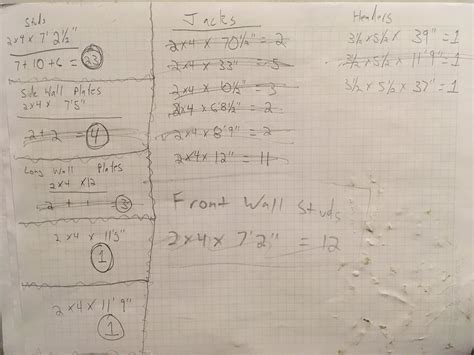 Studs
2x4 x 7' 2½"
7 + 10 + 6 = 23
Side Wall Plates
2x4 x 7'5"
2 + 2 = 4
Long Wall Plates
2x4 x12
2 + 1 = 3
2 x4 x 11'5"
1
2x4 x 11' 9"
1
Jacks
2x4 x 70½" = 2
2x4 x 33" = 5
2x4 x = 3
2x4 x 68½" = 2
2x4 x 8'9" = 2
2x4x 12" = 11
Front Wall Studs
2x4 x 7'2" = 12
Headers
3½ x 5½ x 39" = 1
3½ x 5½ x 11'9" = 1
3½ x 5½ x 37" = 1